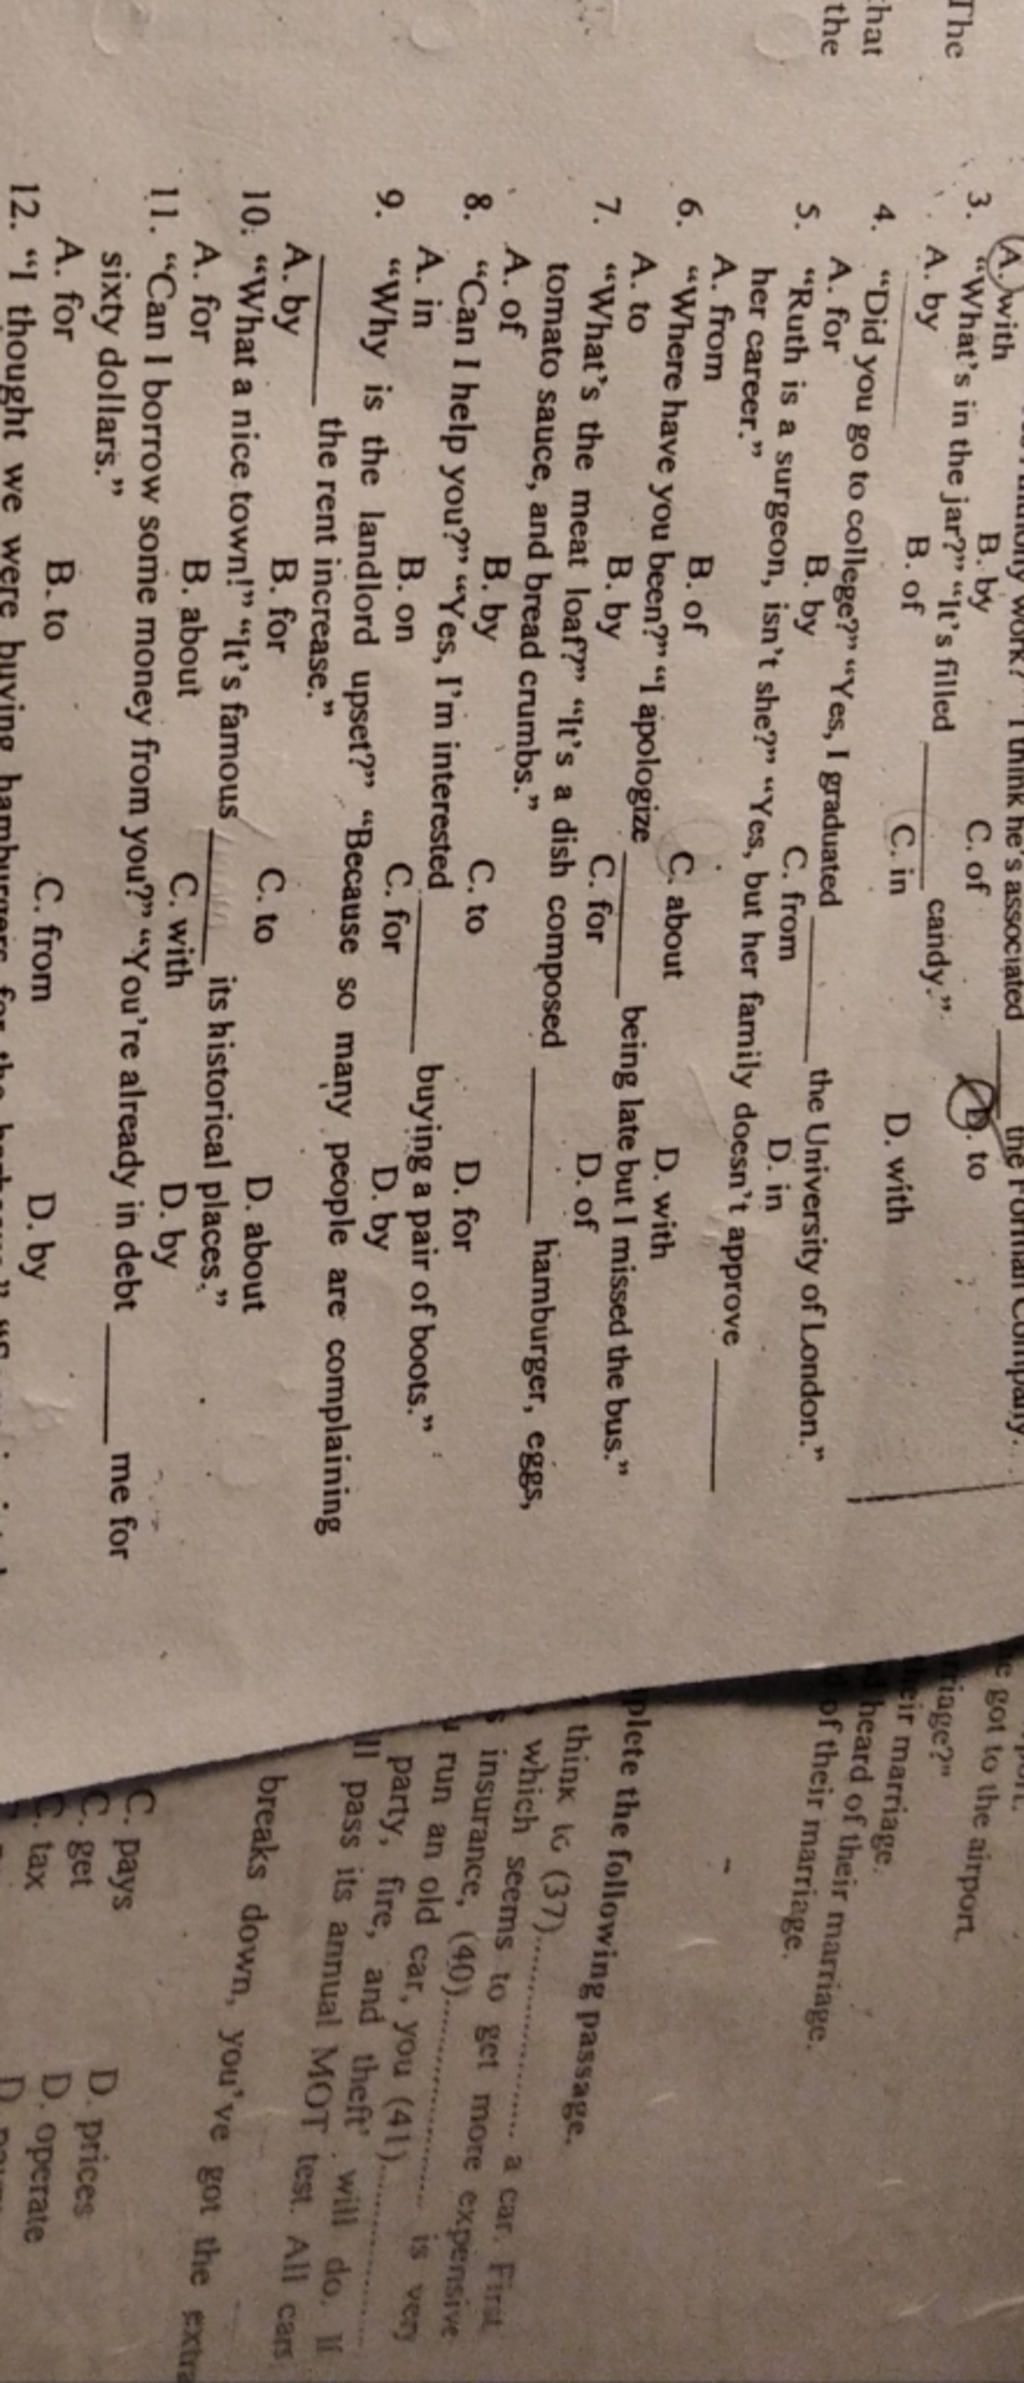 The
that
the
think he's associated ______ the Forman Company.
A. with B. by C. of D. to
3. “What's in the jar?” “It's filled ______ candy.”
A. by B. of C. in D. with
4. “Did you go to college?” “Yes, I graduated ______ the University of London.”
A. for B. by C. from D. in
5. “Ruth is a surgeon, isn't she?” “Yes, but her family doesn't approve ______
her career.”
A. from B. of C. about D. with
6. “Where have you been?” “I apologize ______ being late but I missed the bus.”
A. to B. by C. for D. of
7. “What's the meat loaf?” “It's a dish composed ______ hamburger, eggs,
tomato sauce, and bread crumbs.”
A. of B. by C. to D. for
8. “Can I help you?” “Yes, I'm interested ______ buying a pair of boots.”
A. in B. on C. for D. by
9. “Why is the landlord upset?” “Because so many people are complaining
______ the rent increase.”
A. by B. for C. to D. about
10. “What a nice town!” “It's famous ______ its historical places.”
A. for B. about C. with D. by
11. “Can I borrow some money from you?” “You're already in debt ______ me for
sixty dollars.”
A. for B. to C. from D. by
12. “I thought we were buying hamburgers for the
got to the airport.
riage?”
eir marriage.
heard of their marriage.
of their marriage.
plete the following passage.
think (37)........ a car. First
which seems to get more expensive
insurance, (40)........ is very
run an old car, you (41)........
party, fire, and theft' will do. If
ll pass its annual MOT test. All cars
breaks down, you've got the extra
C. pays D. prices
C. get D. operate
C. tax